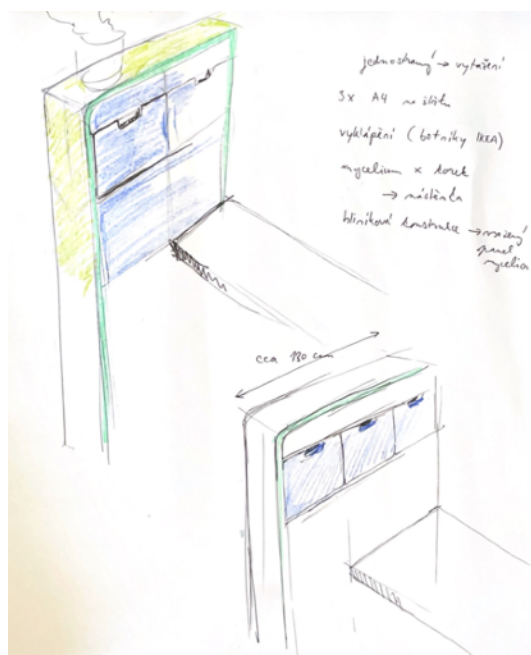 jednostranný → vytažení
3x A4 na šířku
vyklápění (botníky IKEA)
mycelium x korek
→ nástěnka
hliníková konstrukce → vsazený
panel
mycelia
cca 180 cm